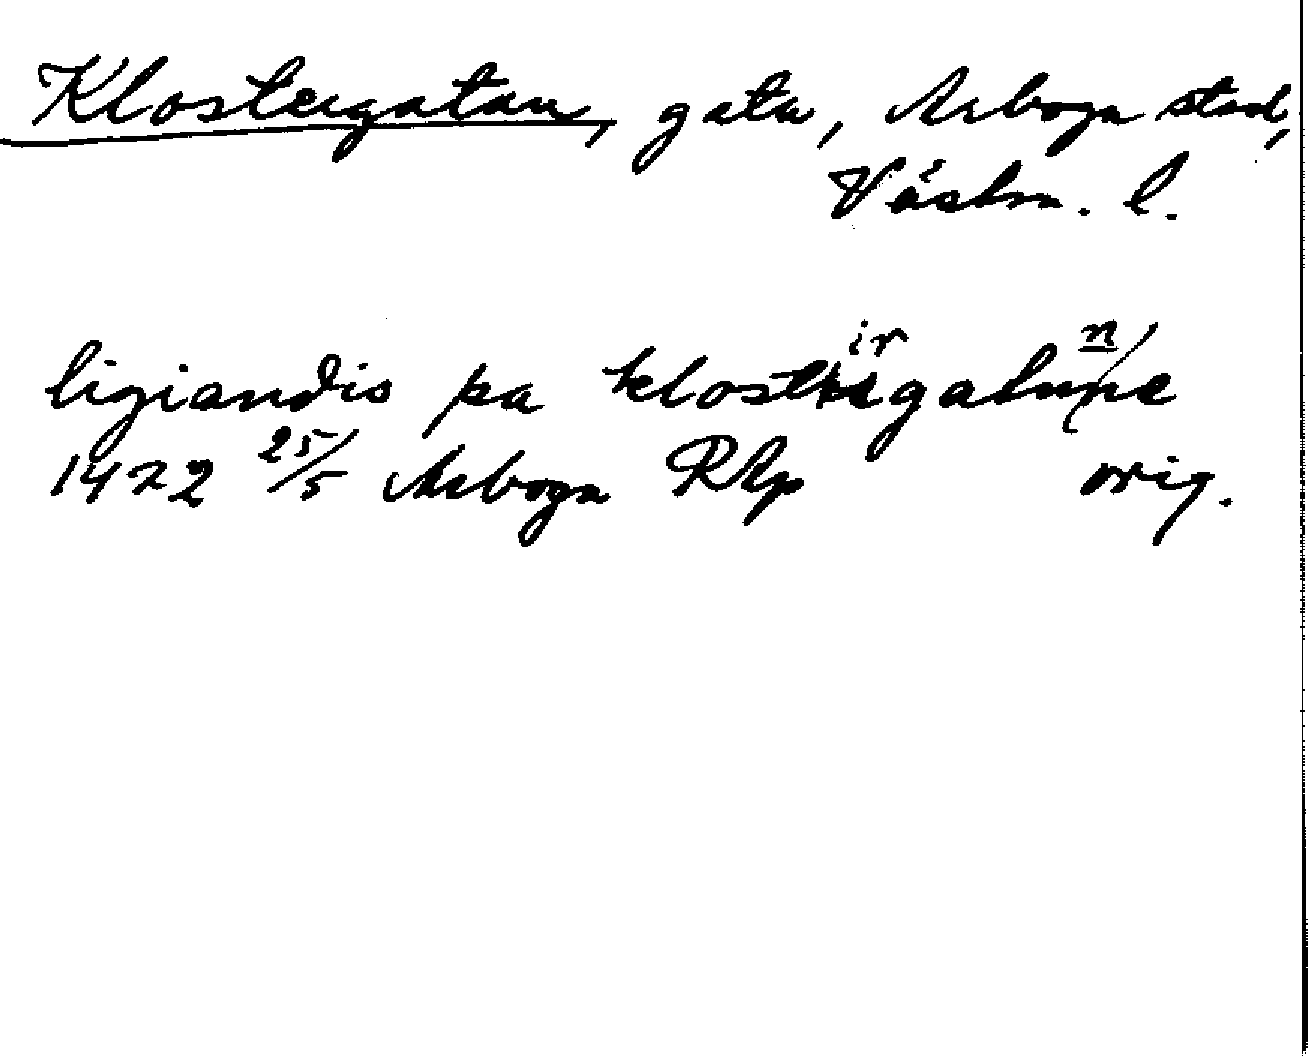 Klostergatan, gata, Arboga stad,
Västm. l.
ligiandis pa klostirgatunne
1472 25/5 Arboga RAp orig.